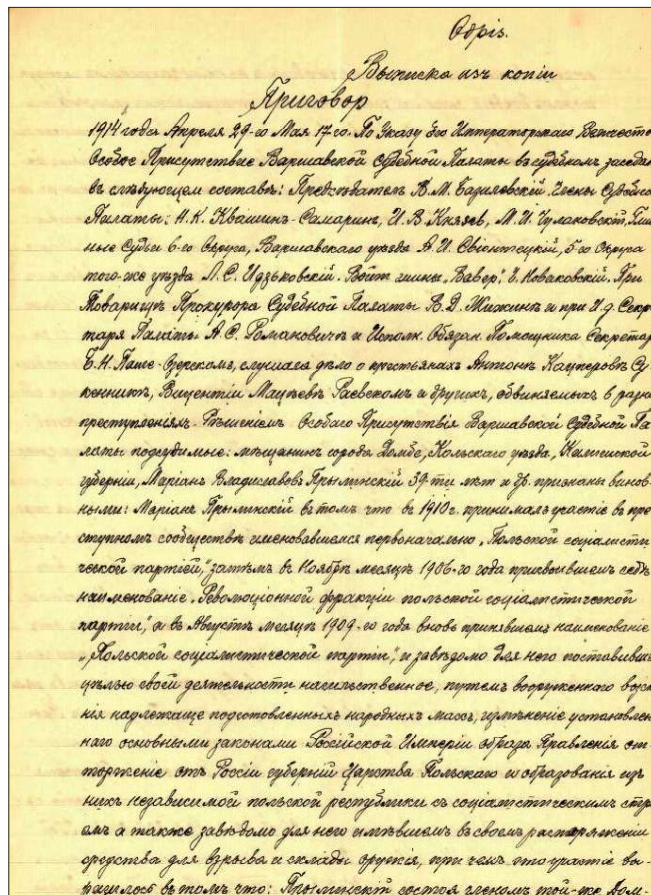 Одрiз.
Выписка изъ копiи
Приговор
1914 года Апреля 29-го Мая 17-го. По Указу Его Императорскаго Величество
Особое Присутствие Варшавской Судебной Палаты въ судебном заседан
въ слѣдующем составѣ: Предсѣдатель В. М. Базилевскiй, Члены Судебной
Палаты: Н. К. Квашин-Самарин, И. В. Князев, М. И. Чулаковскiй, Гмин
ные Судьи 6-го Округа, Варшавскаго уѣзда А. И. Свiонтецкiй, 5-го Округа
того-же уѣзда Л. С. Идзьковскiй. Войт гмины „Вавер“, Новаковскiй. При
Товарищѣ Прокурора Судебной Палаты В. Д. Жижинѣ и при И. д. Секре
таря Палаты А. С. Романовичѣ и Исполн. Обязан. Помощника Секретар
Б. Н. Паше-Озерском, слушала дѣло о крестьянах Антонѣ Кацперовѣ Су
кенникѣ, Вицентiи Мацѣевѣ Раевском и других, обвиняемых в разн
преступленiях. Рѣшенiем Особаго Присутствiя Варшавской Судебной Па
латы подсудимые: мѣщанин города Домбе, Кольскаго уѣзда, Калишской
губернiи, Марiан Владиславов Прылинскiй 39-ти лѣт и др. признаны винов
ными: Марiан Прылинскiй в том что в 1910 г. принимал участiе в пре
ступном сообществѣ именовавшемся первоначально „Польской социалисти
ческой партiей,“ затѣм в Ноябрѣ месяцѣ 1906-го года присвоившем себѣ
наименованiе „Революцiонной фракцiи польской социалистической
партiи,“ а в Августѣ месяцѣ 1909-го года вновь принявшем наименованiе
„Польской социалистической партiи“, и завѣдомо для него поставивш
цѣлью своей деятельности насильственное, путем вооруженнаго возста
нiя надлежаще подготовленных народных масс, измѣненiе установлен
наго основными законами Россiйской Имперiи образа Правленiя от
торженiе от Россiи губернiй Царства Польскаго и образованiя из
них независимой польской республики съ социалистическим стро
ем а также завѣдомо для него имѣвшем в своем распоряженiи
средства для взрыва и склады оружiя, при чем это участiе вы-
разилось в том что: Прылинскiй состоя членом той-же Дом-